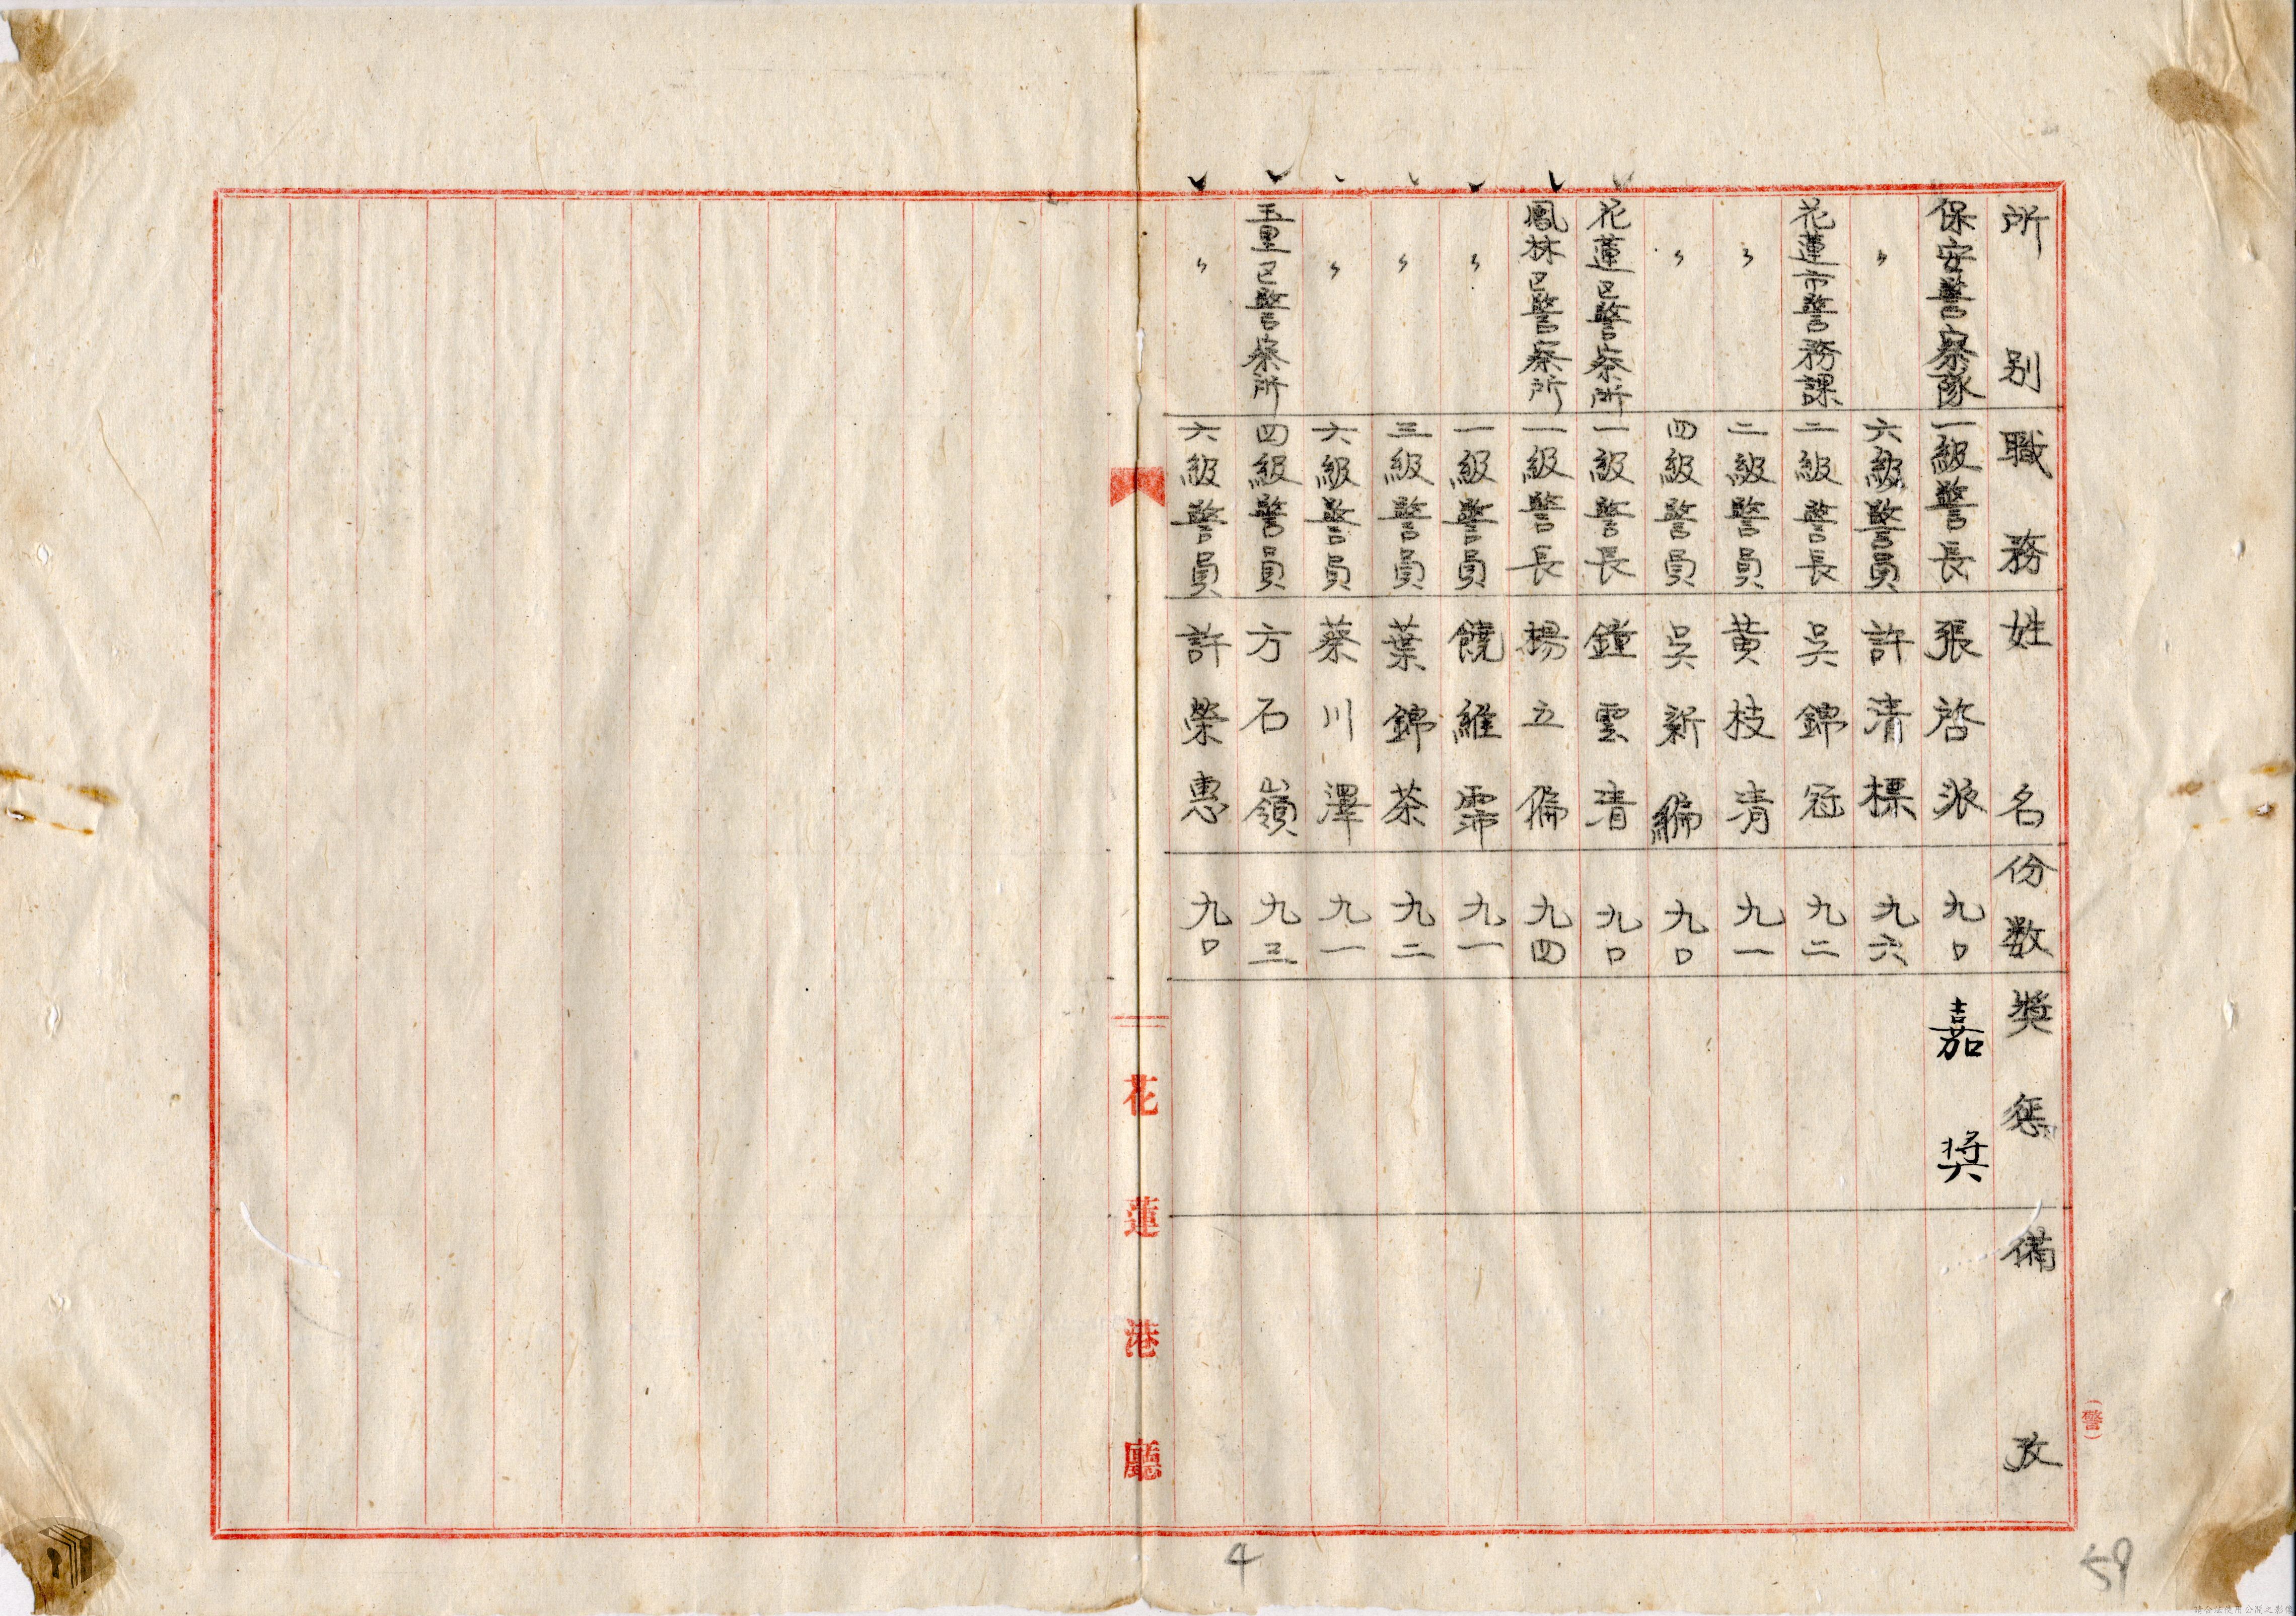 所別 職務 姓名 份数 奬惩 備攷
保安警察隊 一級警長 張啓派 九〇 嘉奖
〃 六級警員 許清標 九六
花蓮市警務課 二級警長 吳錦冠 九二
〃 二級警員 黃枝清 九一
〃 四級警員 吳新編 九〇
花蓮区警察所 一級警長 鐘雲清 九〇
鳳林区警察所 一級警長 楊五偏 九四
〃 一級警員 饒維霈 九一
〃 三級警員 葉錦茶 九二
〃 六級警員 蔡川澤 九一
玉里区警察所 四級警員 方石嶺 九三
〃 六級警員 許榮惠 九〇
花蓮港廳
(警)
4
59